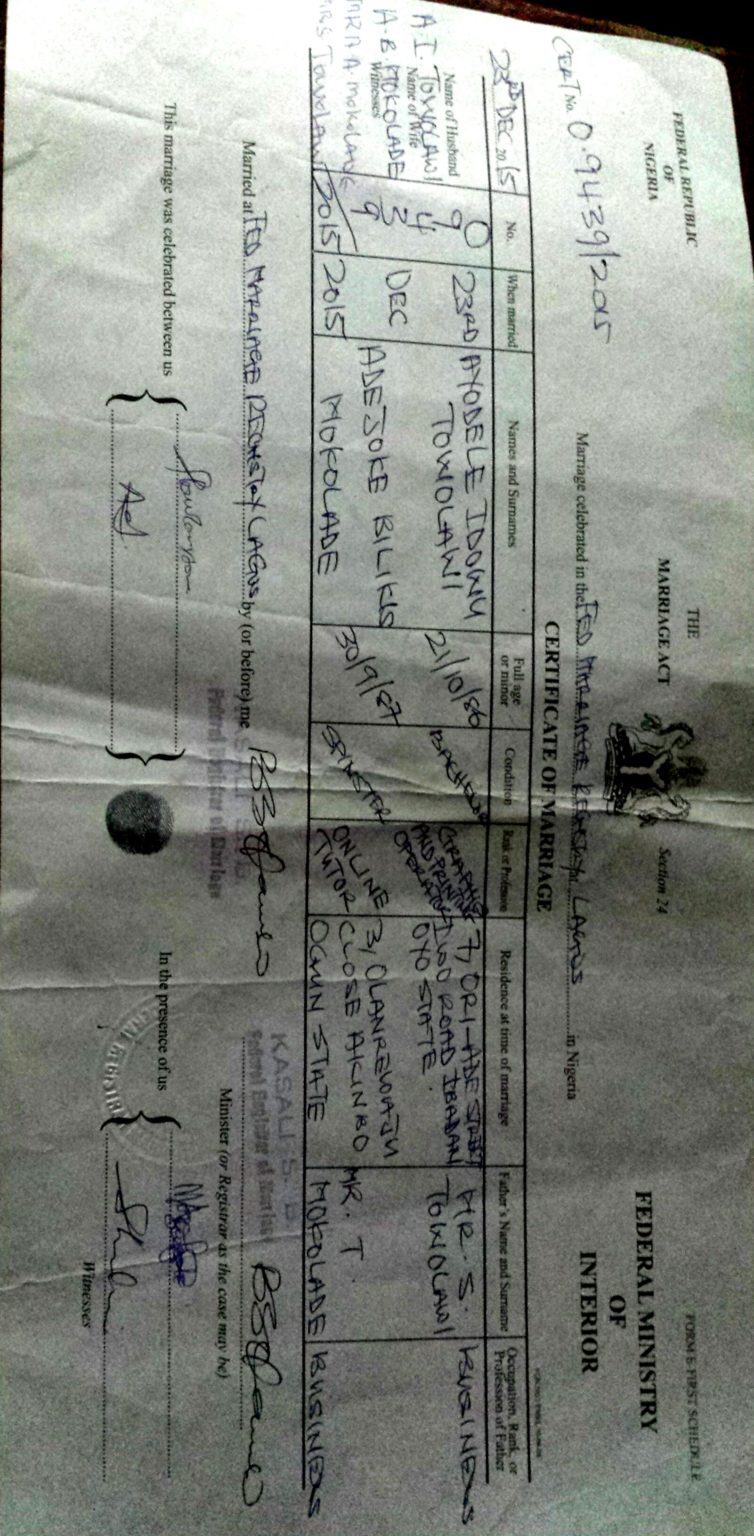 FEDERAL REPUBLIC
OF
NIGERIA
THE
MARRIAGE ACT
Section 24
FORM E- FIRST SCHEDULE
FEDERAL MINISTRY
OF
INTERIOR
CERT No. 0.9439/2015
Marriage celebrated in the FED MARRIAGE REGISTRY LAGOS in Nigeria
CERTIFICATE OF MARRIAGE
23RD DEC 2015
No.
When married
Names and Surnames
Full age or minor
Condition
Rank or Profession
Residence at time of marriage
Father's Name and Surname
Occupation, Rank, or Profession of Father
Name of Husband
A. I. TOWOLAWI
Name of Wife
A. B. MOKOLADE
Witnesses
MR A. A. MOKOLADE
MRS TOWOLAWI
09439/2015
23RD DEC 2015
AYODELE IDOWU TOWOLAWI
21/10/86
BACHELOR
GRAPHIC AND PRINTING OPERATOR
7, ORI-ADE STREET IWO ROAD IBADAN OYO STATE.
MR. S. TOWOLAWI
BUSINESS
ADEJOKE BILIKIS MOKOLADE
30/9/87
SPINSTER
ONLINE TUTOR
3, OLANREWAJU CLOSE AKINBO OGUN STATE
MR. T MOKOLADE
BUSINESS
Married at FED MARRIAGE REGISTRY LAGOS by (or before) me
KASALI S. B.
Federal Registrar of Marriage
Minister (or Registrar as the case may be)
KASALI S. B.
Federal Registrar of Marriage
This marriage was celebrated between us
In the presence of us
Witnesses